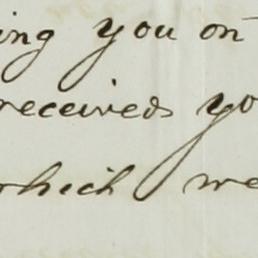 ing you on
received yo
which we